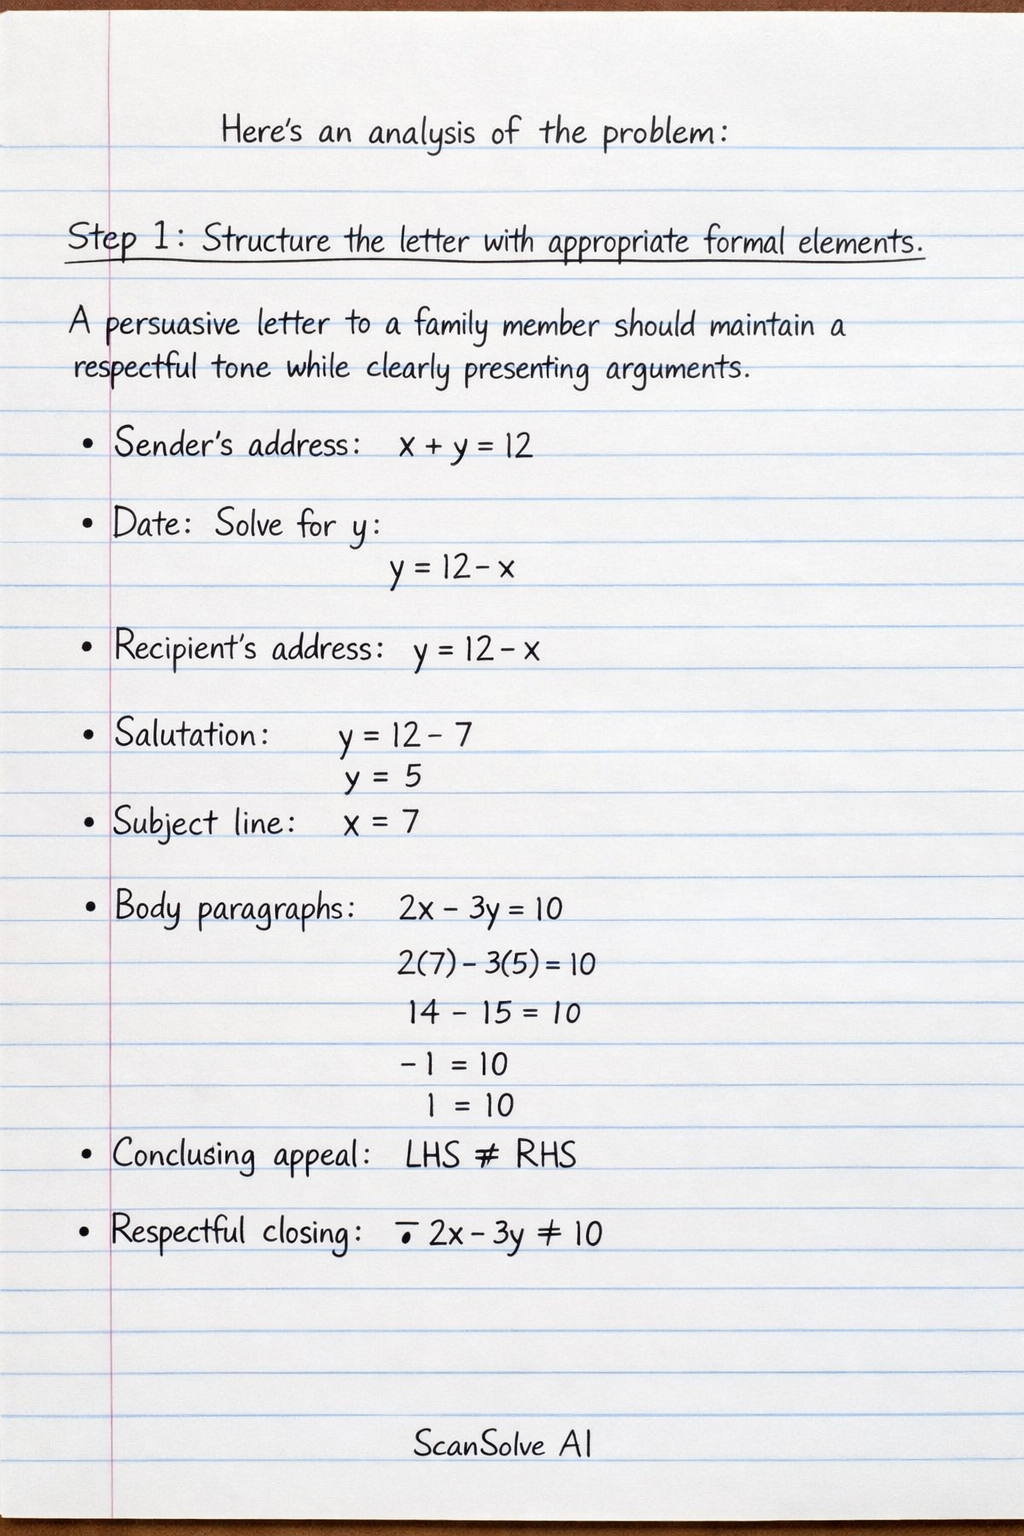 Here's an analysis of the problem:
Step 1: Structure the letter with appropriate formal elements.
A persuasive letter to a family member should maintain a
respectful tone while clearly presenting arguments.
• Sender's address: x + y = 12
• Date: Solve for y:
y = 12 - x
• Recipient's address: y = 12 - x
• Salutation: y = 12 - 7
y = 5
• Subject line: x = 7
• Body paragraphs: 2x - 3y = 10
2(7) - 3(5) = 10
14 - 15 = 10
-1 = 10
1 = 10
• Conclusing appeal: LHS ≠ RHS
• Respectful closing: 2x - 3y ≠ 10
ScanSolve AI